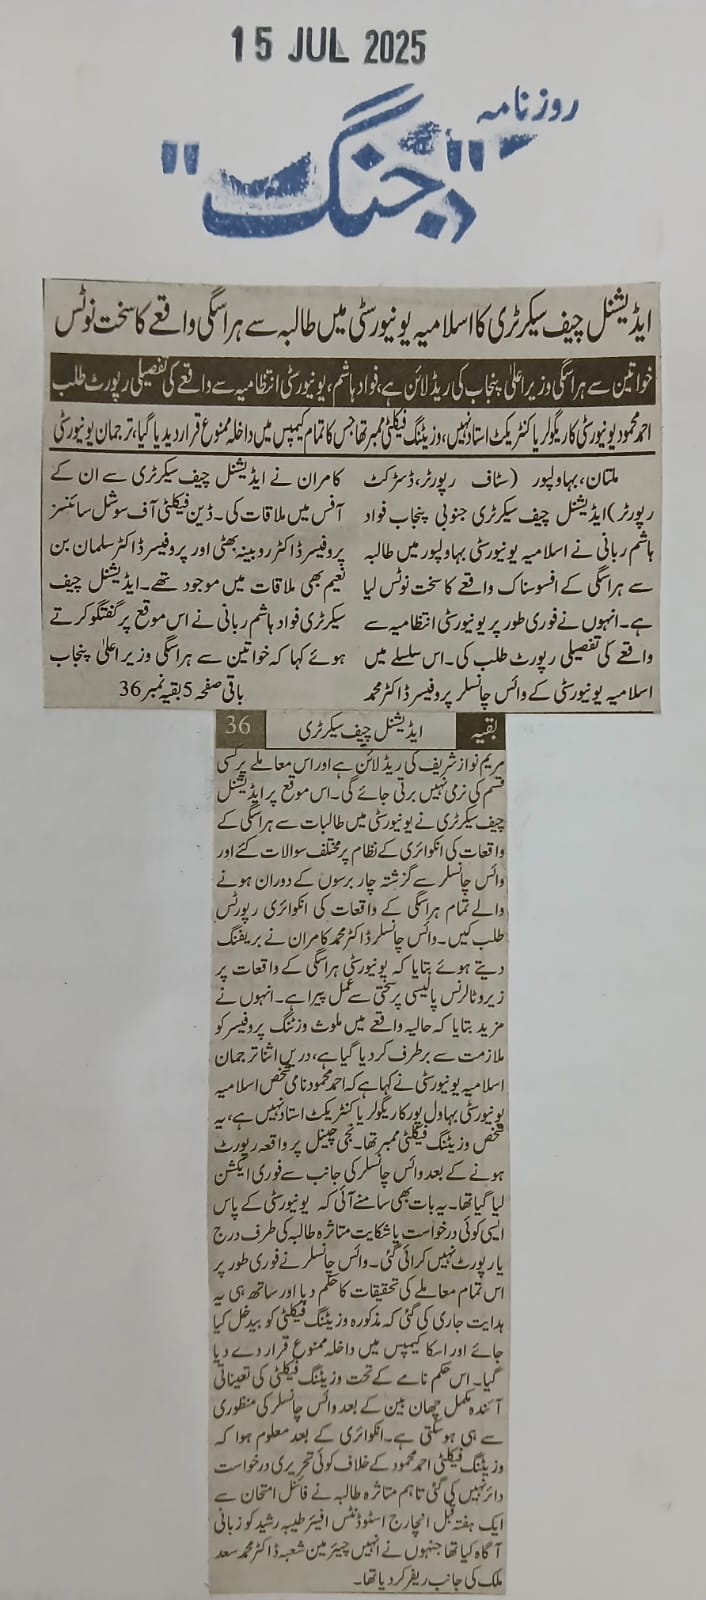 15 JUL 2025
روزنامہ
"جنگ"
ایڈیشنل چیف سیکرٹری کا اسلامیہ یونیورسٹی میں طالبہ سے ہراسگی واقعے کا سخت نوٹس
خواتین سے ہراسگی وزیراعلیٰ پنجاب کی ریڈ لائن ہے، فواد ہاشم، یونیورسٹی انتظامیہ سے واقعے کی تفصیلی رپورٹ طلب
احمد محمود یونیورسٹی کا ریگولر یا کنٹریکٹ استاد نہیں، وزیٹنگ فیکلٹی ممبر تھا جس کا تمام کیمپس میں داخلہ ممنوع قرار دیدیا گیا، ترجمان یونیورسٹی
ملتان، بہاولپور (سٹاف رپورٹر، ڈسٹرکٹ
رپورٹر) ایڈیشنل چیف سیکرٹری جنوبی پنجاب فواد
ہاشم ربانی نے اسلامیہ یونیورسٹی بہاولپور میں طالبہ
سے ہراسگی کے افسوسناک واقعے کا سخت نوٹس لیا
ہے۔ انہوں نے فوری طور پر یونیورسٹی انتظامیہ سے
واقعے کی تفصیلی رپورٹ طلب کی۔ اس سلسلے میں
اسلامیہ یونیورسٹی کے وائس چانسلر پروفیسر ڈاکٹر محمد
کامران نے ایڈیشنل چیف سیکرٹری سے ان کے
آفس میں ملاقات کی۔ ڈین فیکلٹی آف سوشل سائنسز
پروفیسر ڈاکٹر روبینہ بھٹی اور پروفیسر ڈاکٹر سلمان بن
نعیم بھی ملاقات میں موجود تھے۔ ایڈیشنل چیف
سیکرٹری فواد ہاشم ربانی نے اس موقع پر گفتگو کرتے
ہوئے کہا کہ خواتین سے ہراسگی وزیراعلیٰ پنجاب
باقی صفحہ 5 بقیہ نمبر 36
بقیہ ایڈیشنل چیف سیکرٹری 36
مریم نواز شریف کی ریڈ لائن ہے اور اس معاملے پر کسی
قسم کی نرمی نہیں برتی جائے گی۔ اس موقع پر ایڈیشنل
چیف سیکرٹری نے یونیورسٹی میں طالبات سے ہراسگی کے
واقعات کی انکوائری کے نظام پر مختلف سوالات کئے اور
وائس چانسلر سے گزشتہ چار برسوں کے دوران ہونے
والے تمام ہراسگی کے واقعات کی انکوائری رپورٹس
طلب کیں۔ وائس چانسلر ڈاکٹر محمد کامران نے بریفنگ
دیتے ہوئے بتایا کہ یونیورسٹی ہراسگی کے واقعات پر
زیرو ٹالرنس پالیسی پر سختی سے عمل پیرا ہے۔ انہوں نے
مزید بتایا کہ حالیہ واقعے میں ملوث وزٹنگ پروفیسر کو
ملازمت سے برطرف کر دیا گیا ہے، دریں اثنا ترجمان
اسلامیہ یونیورسٹی نے کہا ہے کہ احمد محمود نامی شخص اسلامیہ
یونیورسٹی بہاول پور کا ریگولر یا کنٹریکٹ استاد نہیں ہے، یہ
شخص وزیٹنگ فیکلٹی ممبر تھا۔ نجی چینل پر واقعہ رپورٹ
ہونے کے بعد وائس چانسلر کی جانب سے فوری ایکشن
لیا گیا تھا۔ یہ بات بھی سامنے آئی کہ یونیورسٹی کے پاس
ایسی کوئی درخواست یا شکایت متاثرہ طالبہ کی طرف درج
یا رپورٹ نہیں کرائی گئی۔ وائس چانسلر نے فوری طور پر
اس تمام معاملے کی تحقیقات کا حکم دیا اور ساتھ ہی یہ
ہدایت جاری کی گئی کہ مذکورہ وزیٹنگ فیکلٹی کو بیدخل کیا
جائے اور اسکا کیمپس میں داخلہ ممنوع قرار دے دیا
گیا۔ اس حکم نامے کے تحت وزیٹنگ فیکلٹی کی تعیناتی
آئندہ مکمل چھان بین کے بعد وائس چانسلر کی منظوری
سے ہی ہوسکتی ہے۔ انکوائری کے بعد معلوم ہوا کہ
وزیٹنگ فیکلٹی احمد محمود کے خلاف کوئی تحریری درخواست
دائر نہیں کی گئی تاہم متاثرہ طالبہ نے فائنل امتحان سے
ایک ہفتہ قبل انچارج اسٹوڈنٹس افیئر طیبہ رشید کو زبانی
آگاہ کیا تھا جنہوں نے انہیں چیئرمین شعبہ ڈاکٹر محمد سعد
ملک کی جانب ریفر کر دیا تھا۔